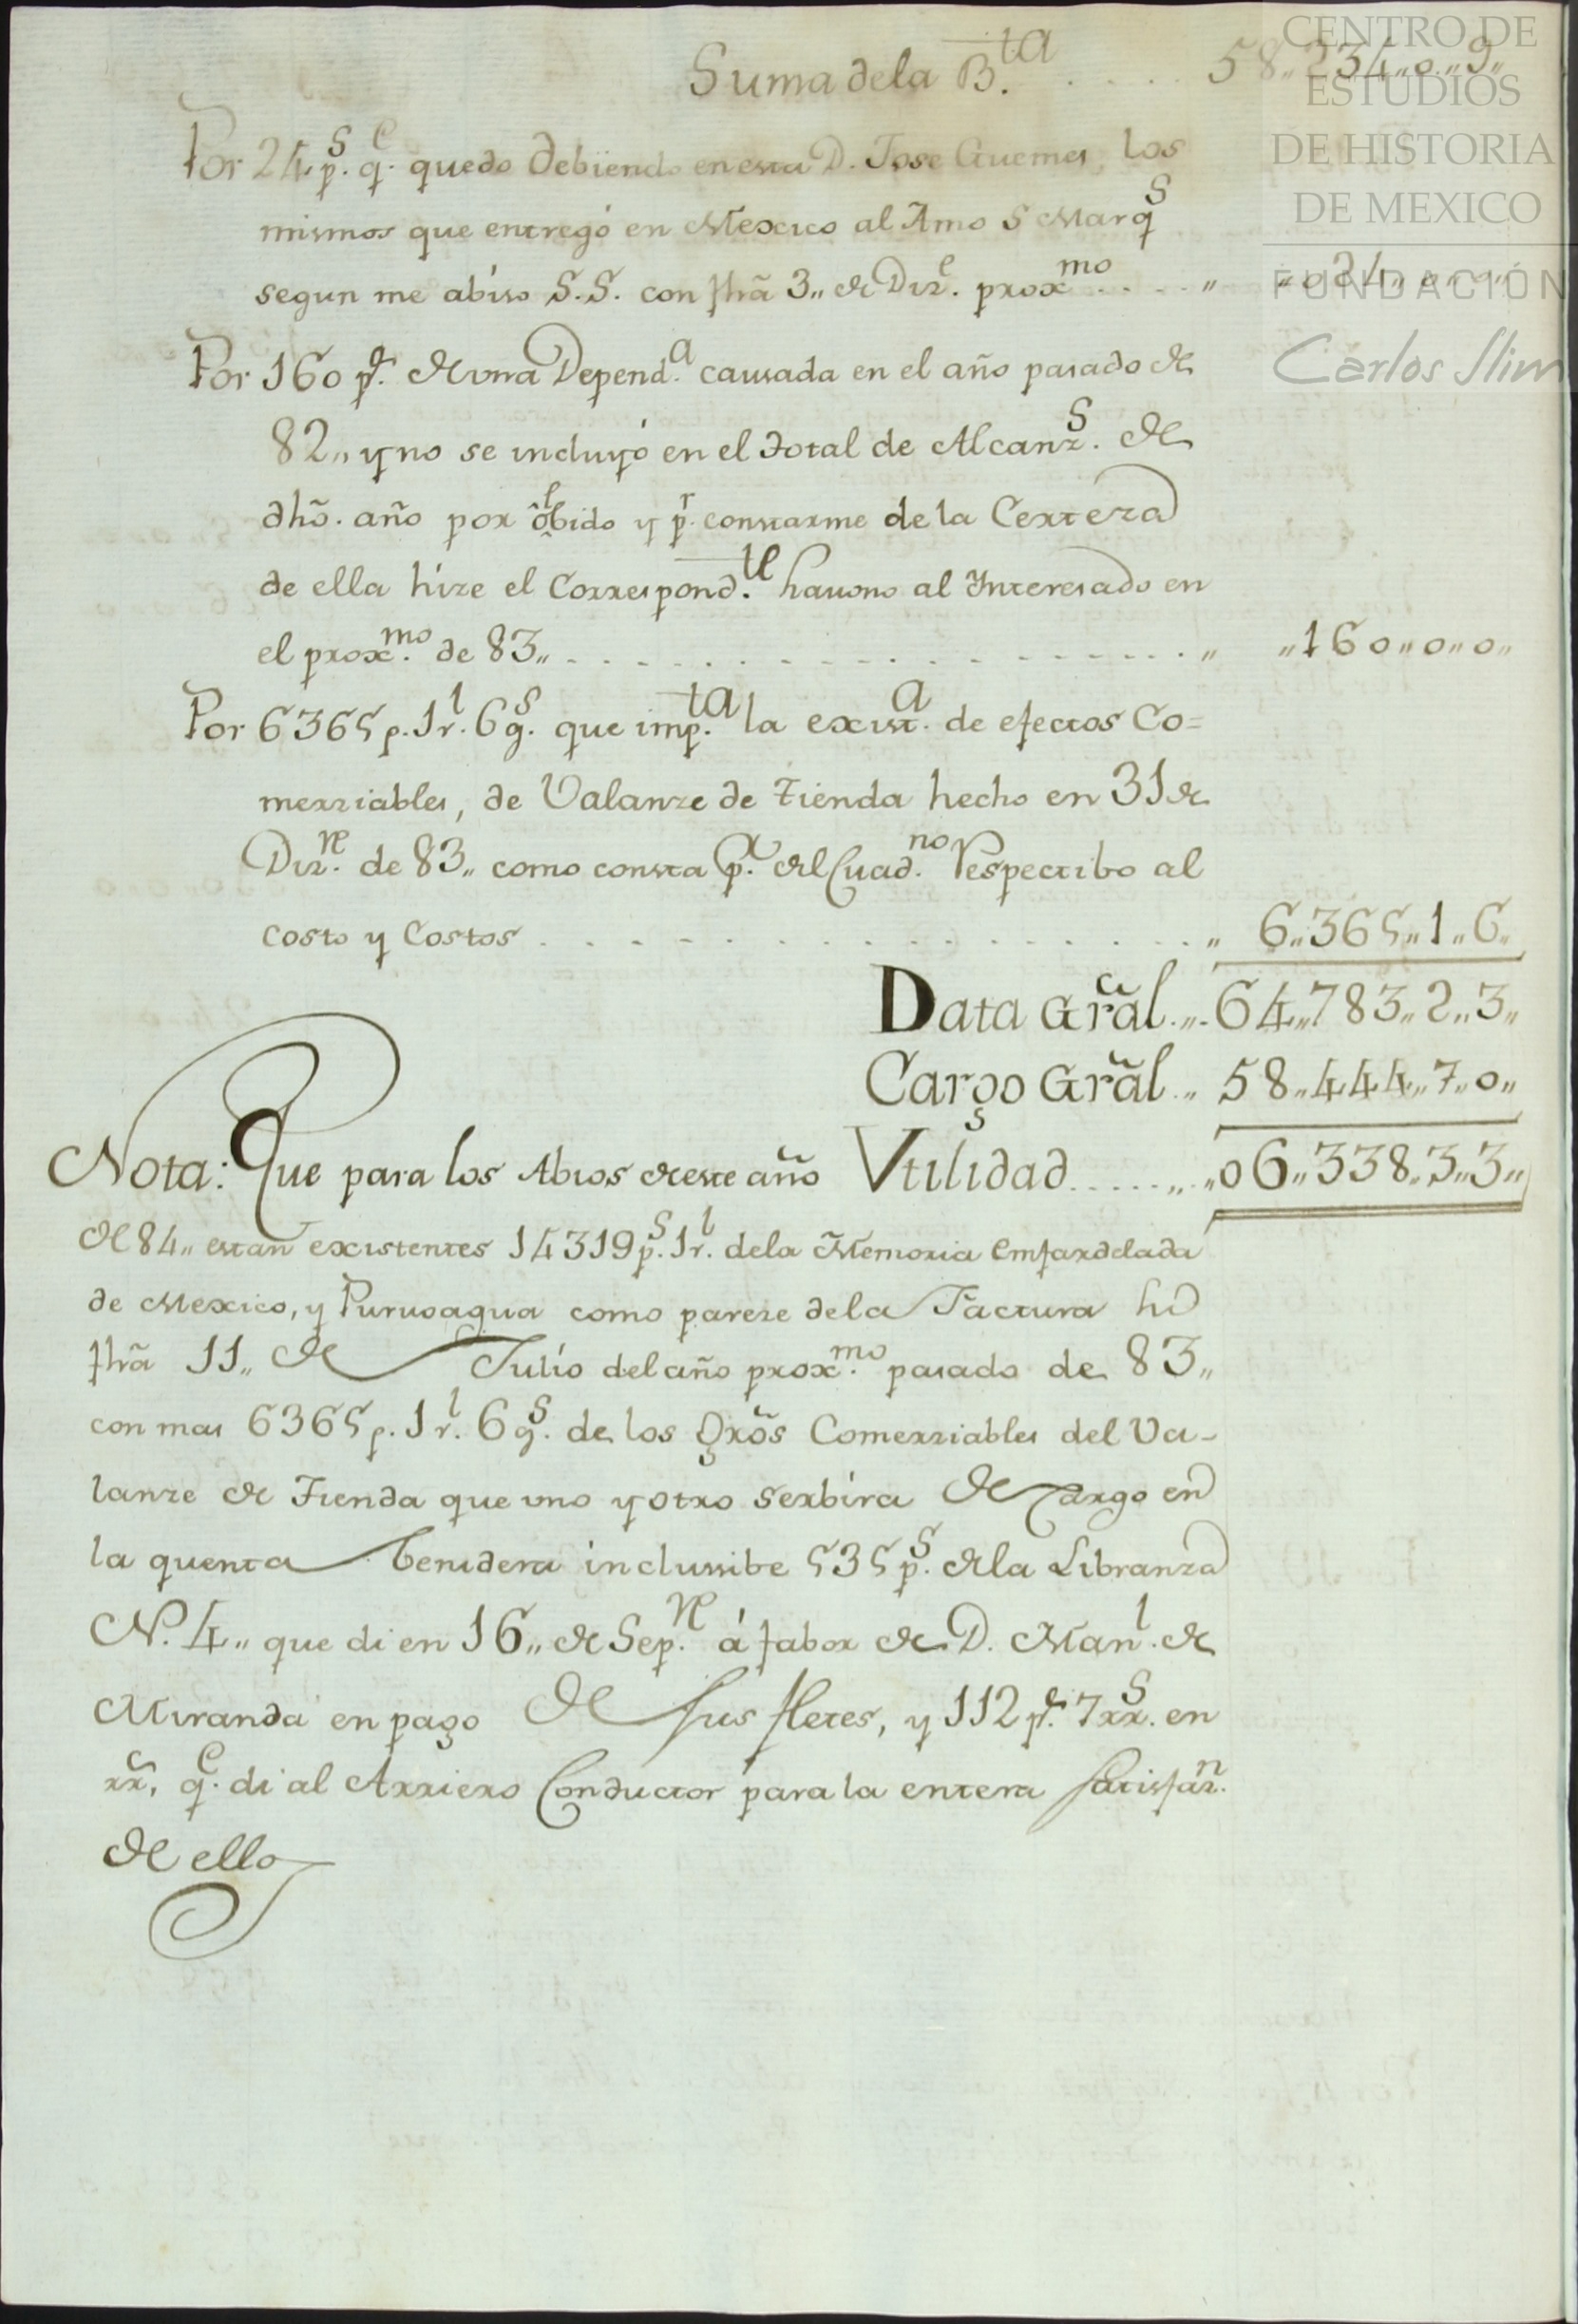 Suma dela B.ta . . . . 58,,234,,0,,9,,
Por 24 p.s q.e quedo debiendo en esta D. Jose Guemes, los
mismos que entregó en Mexico al Amo S Marq.s
segun me abiso S.S. con fhã 3,, de Diz.e prox.mo . . . . ,, ,,024,,0,,0,,
Por 160 p.s de vna Depend.a causada en el año pasado de
82,, y no se incluyó en el total de Alcanz.s de
dhõ. año por olbido y p.r constarme de la Certeza
de ella hize el Correspond.te havono al Interesado en
el prox.mo de 83,, . . . . . . . . . . . . . . . . . ,, ,,160,,0,,0,,
Por 6365 p. 1 r.l 6 g.s que imp.ta la exist.a de efectos Co=
merziables, de Valanze de Tienda hecho en 31 de
Diz.re de 83,, como consta p.r el Cuad.no Respectibo al
costo y Costos . . . . . . . . . . . . . . . . . ,, 6,,365,,1,,6,,
Data Grãl.,,. 64,,783,,2,,3,,
Cargo Grãl.. ,, 58,,444,,7,,0,,
Nota: Que para los Abios de este año Vtilidad . . . . . ,,. ,,06,,338,,3,,3,,
de 84,, estan existentes 14319 p.s 1 r.l dela Memoria Emfardelada
de Mexico, y Puruoagua como pareze dela Factura
fhã 11,, de Julio del año prox.mo pasado de 83,,
con mas 6365 p. 1 r.l 6 g.s de los Grõs Comerziables del Va-
lanze de Tienda que vno y otro serbira de Cargo en
la quenta benidera inclussibe 535 p.s de la Libranza
N. 4,, que di en 16,, de Sep.re á fabor de D. Man.l de
Miranda en pago de sus fletes, y 112 p.s 7 rr.s en
rr.s, q.e di al Arriero Conductor para la entera satisfaz.n
de ello
CENTRO DE
ESTUDIOS
DE HISTORIA
DE MEXICO
FUNDACIÓN
Carlos Slim